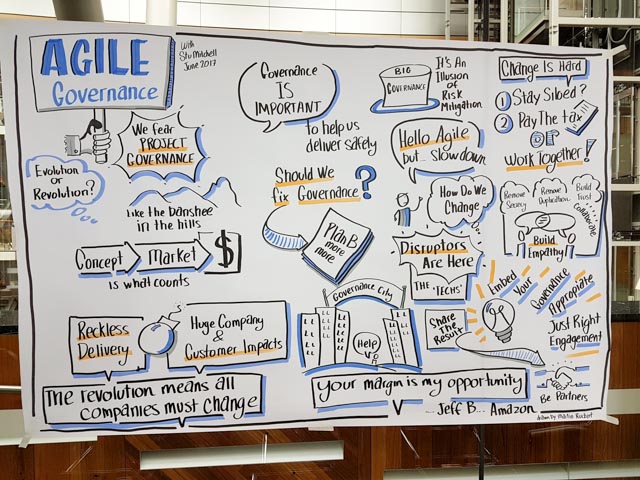 AGILE
Governance
With
Stu Mitchell
June 2017
We fear
PROJECT
GOVERNANCE
Evolution
or
Revolution?
Like the banshee
in the hills
Concept
Market
$
is what counts
Reckless
Delivery
Huge Company
&
Customer Impacts
The revolution means all
companies must change
Governance
IS
IMPORTANT
to help us
deliver safely
Should We
fix Governance?
Plan B
more
more
Governance City
Help
BIG
GOVERNANCE
It's An
Illusion of
Risk
Mitigation
Hello Agile
but... Slow down
How Do We
Change
Disruptors
Are Here
THE 'TECHS'
Share
The
Result
Your margin is my opportunity
... Jeff B... Amazon
Change Is Hard
1 Stay Siloed?
2 Pay The tax
OR
Work Together!
Remove
Secrecy
Remove
Duplication
Build
Trust
Collaborate
Build
Empathy
Embed
Your
Governance
Appropriate
Just Right
Engagement
Be Partners